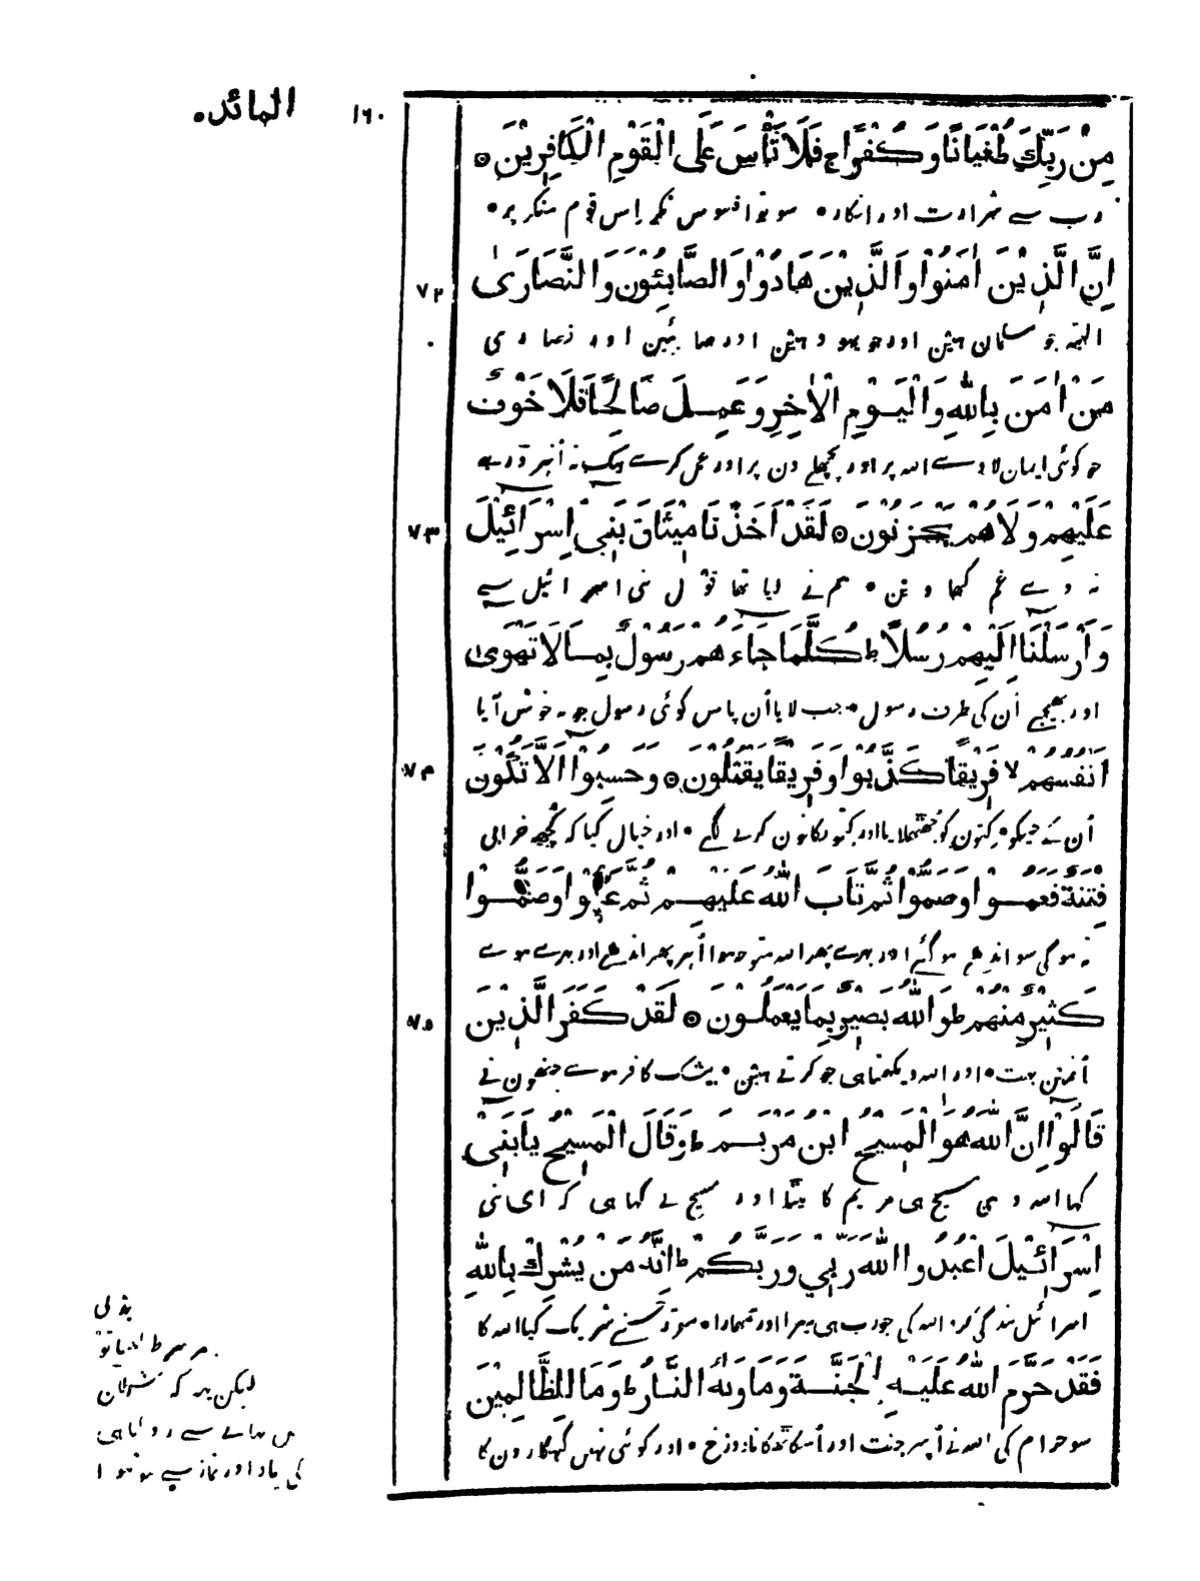 المائدہ
۱۶۰
مِنْ رَبِّكَ طُغْيَانًا وَكُفْرًا ج فَلَا تَأْسَ عَلَى الْقَوْمِ الْكَافِرِيْنَ ۝
رب سے شرارت اور انکار • سو تو افسوس نکر اِس قوم منکر پر •
۷۲
اِنَّ الَّذِيْنَ اٰمَنُوْا وَالَّذِيْنَ هَادُوْا وَالصَّابِئُوْنَ وَالنَّصَارَىٰ
البتہ جو مسلمان ہین اور جو یہود ہین اور صابئین اور نصاری
مَنْ اٰمَنَ بِاللّٰهِ وَالْيَوْمِ الْاٰخِرِ وَعَمِلَ صَالِحًا فَلَا خَوْفٌ
جو کوئی ایمان لاوے اللہ پر اور پچھلے دن پر اور عمل کرے نیک نہ اُنپر ڈر ہے
۷۳
عَلَيْهِمْ وَلَا هُمْ يَحْزَنُوْنَ ۝ لَقَدْ اَخَذْنَا مِيْثَاقَ بَنِيْ اِسْرَائِيْلَ
نہ وے غم کھاوین • ہم نے لیا تھا قول بنی اسرائیل سے
وَاَرْسَلْنَا اِلَيْهِمْ رُسُلًا ط كُلَّمَا جَاءَهُمْ رَسُوْلٌ بِمَا لَا تَهْوَىٰ
اور بھیجے اُن کی طرف رسول • جب لایا اُن پاس کوئی رسول جو نہ خوش آیا
۷۴
اَنْفُسُهُمْ لا فَرِيْقًا كَذَّبُوْا وَفَرِيْقًا يَقْتُلُوْنَ ۝ وَحَسِبُوْا اَلَّا تَكُوْنَ
اُن کے جیکو • کِتون کو جھٹھلایا اور کِتونکا خون کرنے لگے • اور خیال کیا کہ کچھ خرابی
فِتْنَةٌ فَعَمُوْا وَصَمُّوْا ثُمَّ تَابَ اللّٰهُ عَلَيْهِمْ ثُمَّ عَمُوْا وَصَمُّوْا
نہ ہوگی سو اندھے ہو گئے اور بہرے پھر اللہ متوجہ ہوا اُنپر پھر اندھے اور بہرے ہوے
۷۵
كَثِيْرٌ مِنْهُمْ ط وَاللّٰهُ بَصِيْرٌ بِمَا يَعْمَلُوْنَ ۝ لَقَدْ كَفَرَ الَّذِيْنَ
اُنمین بہت • اور اللہ دیکھتا ہی جو کرتے ہین • بیشک کافر ہوے جنھون نے
قَالُوْا اِنَّ اللّٰهَ هُوَ الْمَسِيْحُ ابْنُ مَرْيَمَ ط وَقَالَ الْمَسِيْحُ يَا بَنِيْ
کہا اللہ وہی مسیح ہی مریم کا بیٹا اور مسیح نے کہا ہی کہ ای بنی
اِسْرَائِيْلَ اعْبُدُوا اللّٰهَ رَبِّيْ وَرَبَّكُمْ ط اِنَّهُ مَنْ يُشْرِكْ بِاللّٰهِ
اسرائیل بندگی کرو اللہ کی جو رب ہی میرا اور تمھارا • مقرر جسنے شریک کیا اللہ کا
فَقَدْ حَرَّمَ اللّٰهُ عَلَيْهِ الْجَنَّةَ وَمَأْوٰىهُ النَّارُ ط وَمَا لِلظَّالِمِيْنَ
سو حرام کی اللہ نے اُسپر جنت اور اُسکا ٹھکانا دوزخ • اور کوئی نہین گہنگارون کا
لیکن یہ کہ شیطان
سے روکتا ہی
کی یاد اور نماز سے